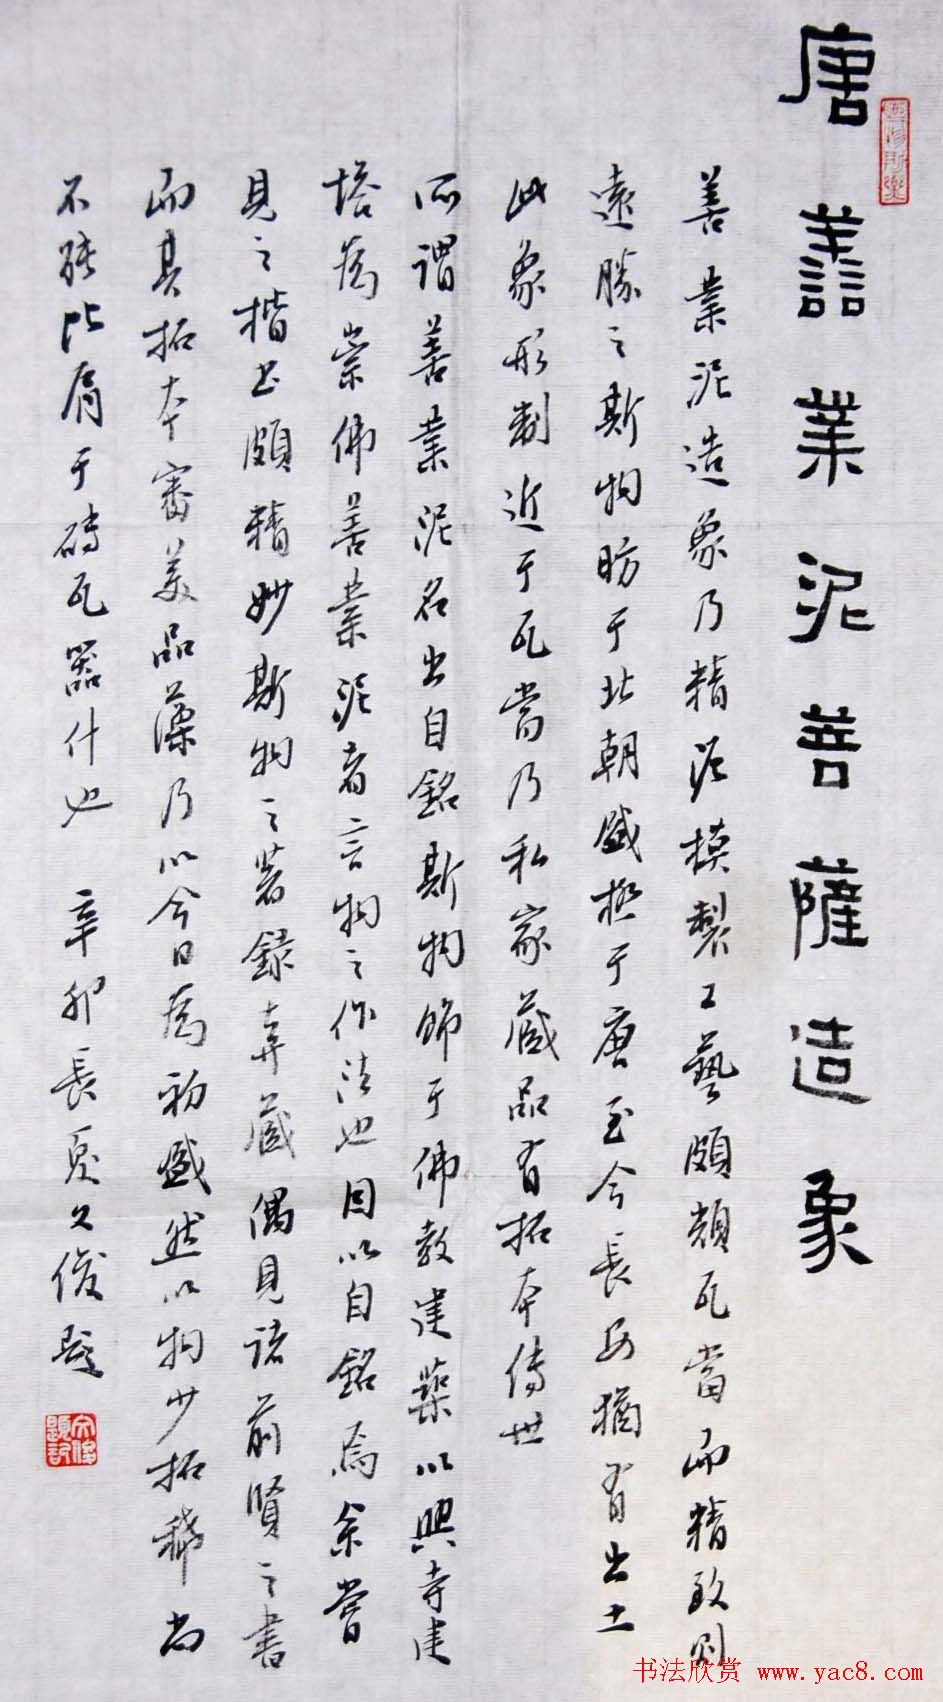 唐譱業泥菩薩造象
善業泥造象乃精泥模製工藝頗類瓦當而精致則
遠勝之斯物昉于北朝盛極于唐至今長安猶有出土
此象形制近于瓦當乃私家藏品有拓本傳世
所謂善業泥名出自銘斯物飾于佛教建築以興寺建
塔為崇佛善業泥者言物之作法也因以自銘焉余嘗
見之楷書頗精妙斯物之著錄弆藏偶見諸前賢之書
而其拓本審美品藻乃以今日為初盛然以物少拓稀尚
不能比肩于磚瓦器什也 辛卯長夏文俊題
書法欣赏 www.yac8.com